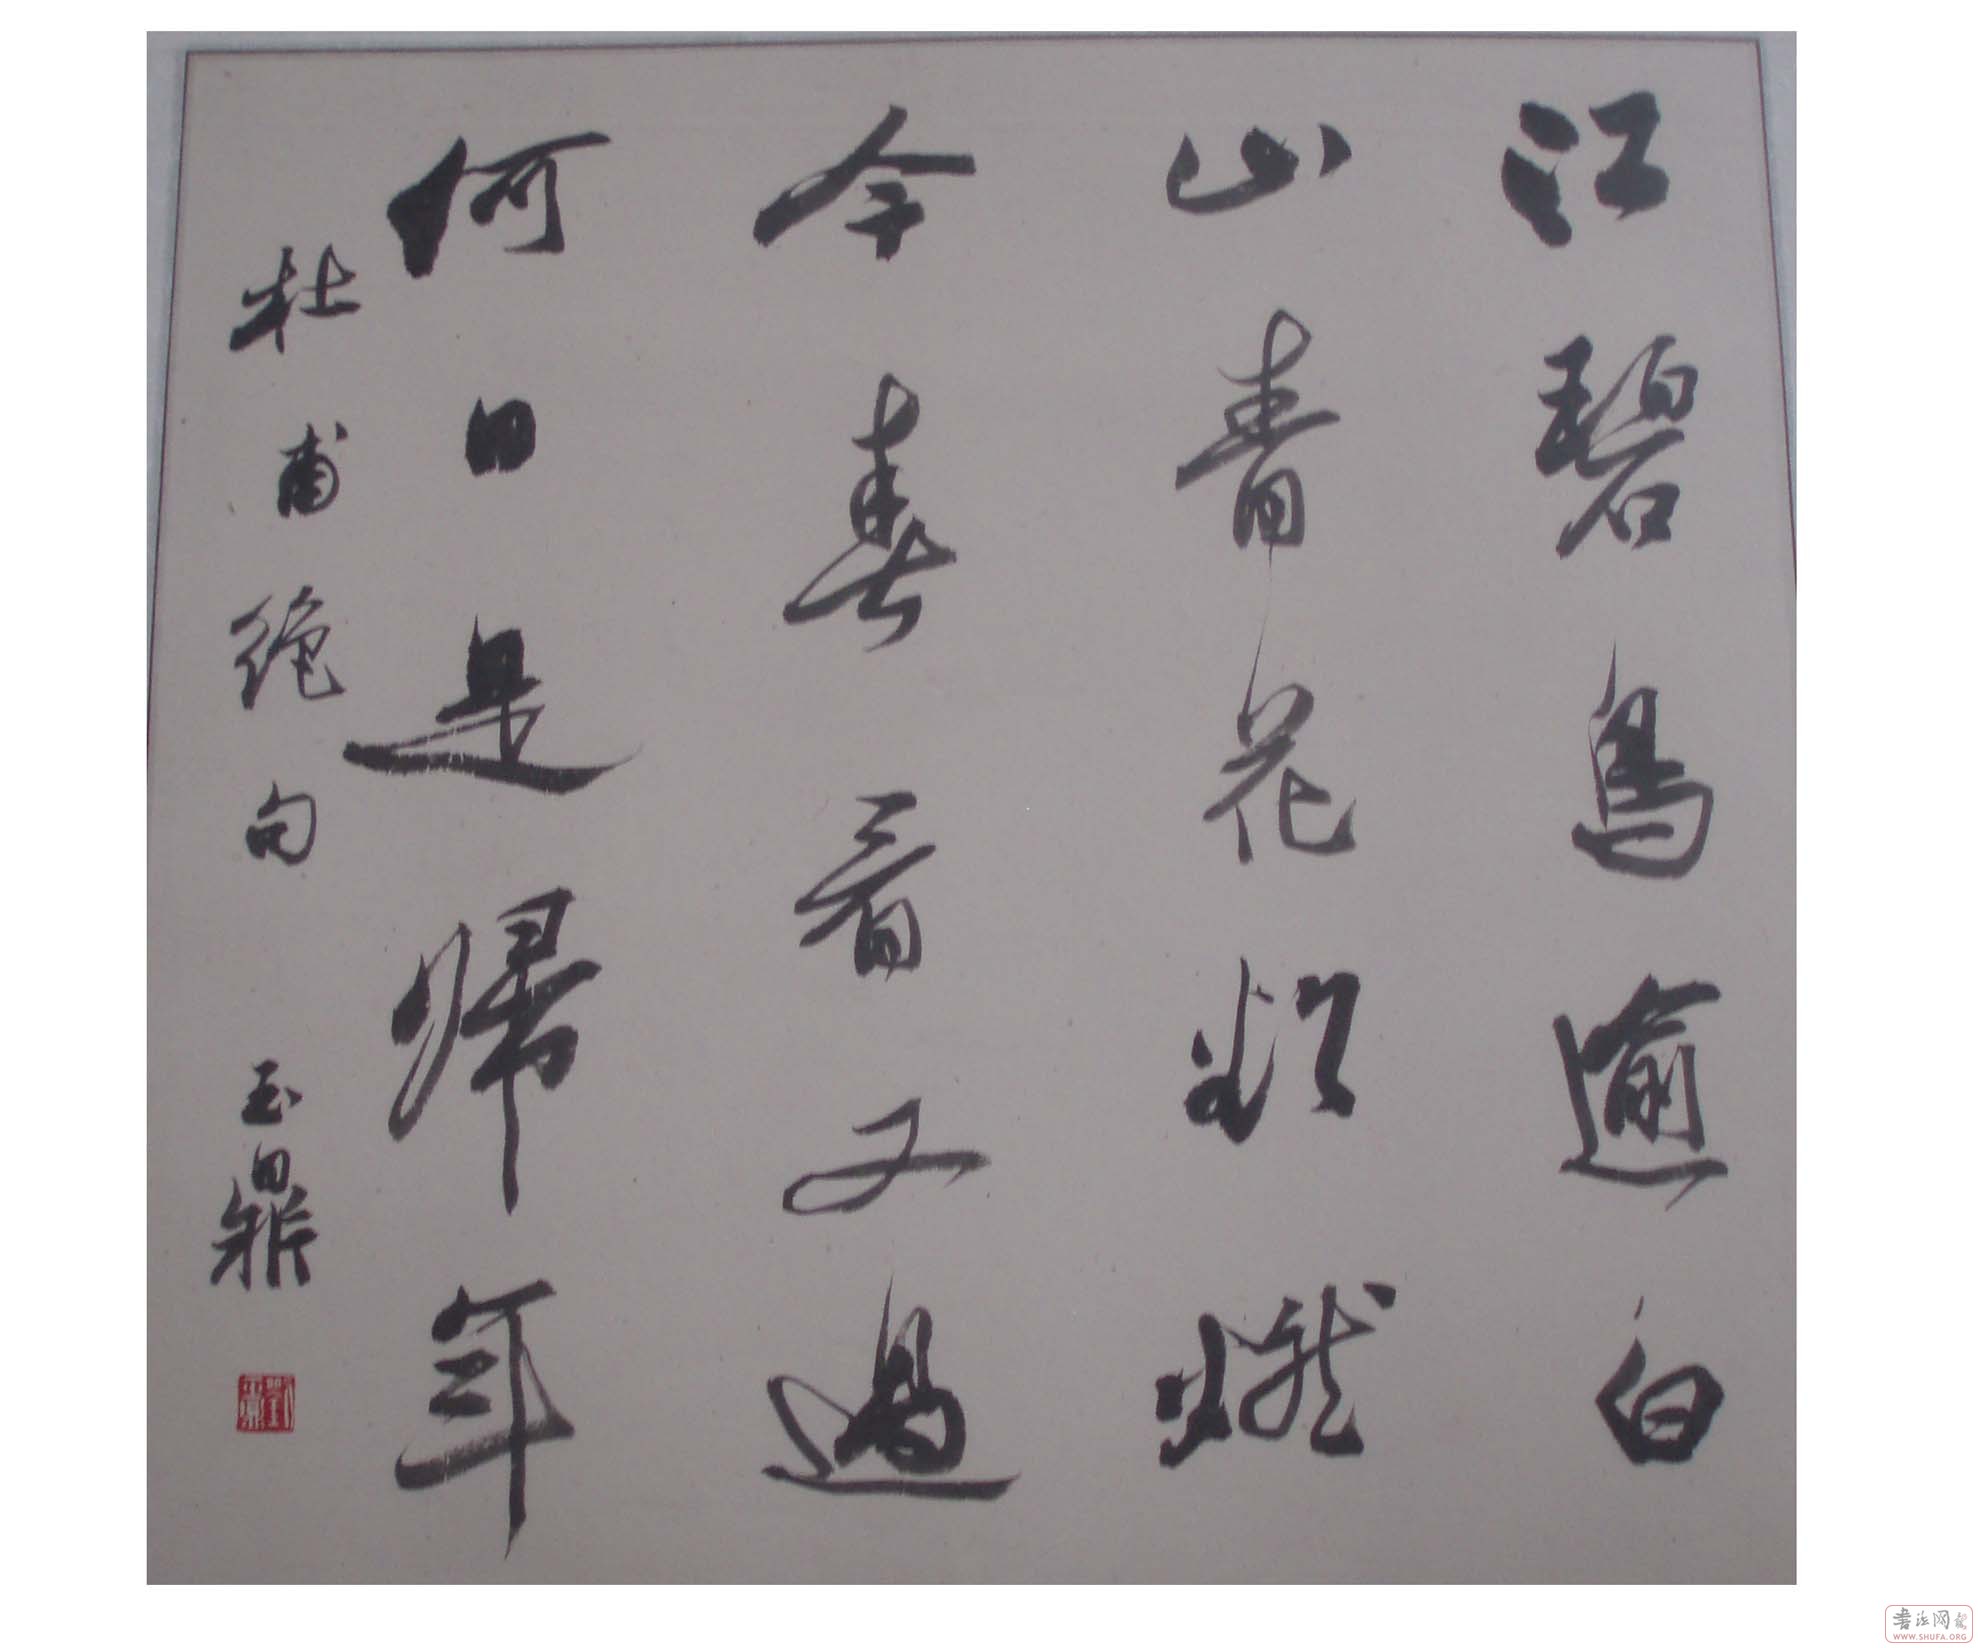 江碧鳥逾白
山青花欲燃
今春看又過
何日是歸年
杜甫絶句 玉鼎
书法网
WWW.SHUFA.ORG